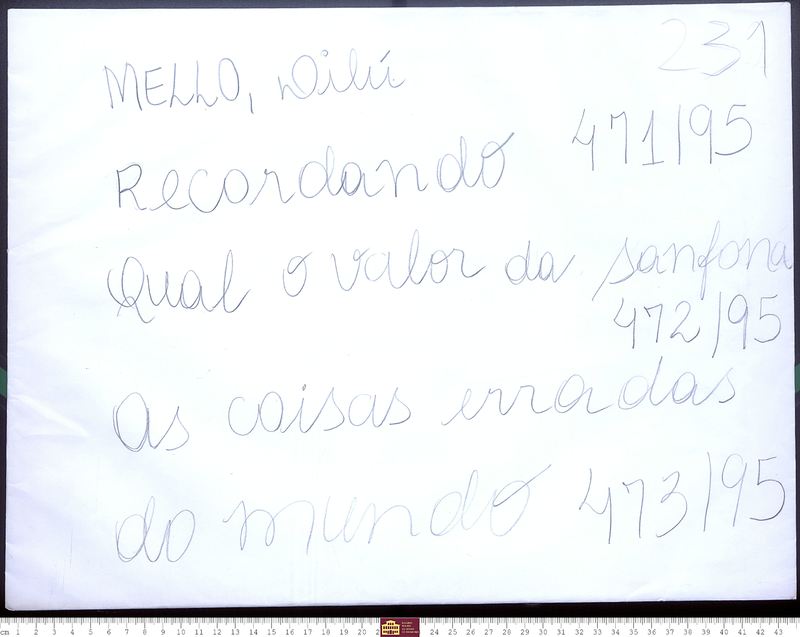 231
MELLO, Dilú
Recordando 471/95
Qual o valor da sanfona
472/95
As coisas erradas
do mundo 473/95
cm 1 2 3 4 5 6 7 8 9 10 11 12 13 14 15 16 17 18 19 20 2 24 25 26 27 28 29 30 31 32 33 34 35 36 37 38 39 40 41 42 43